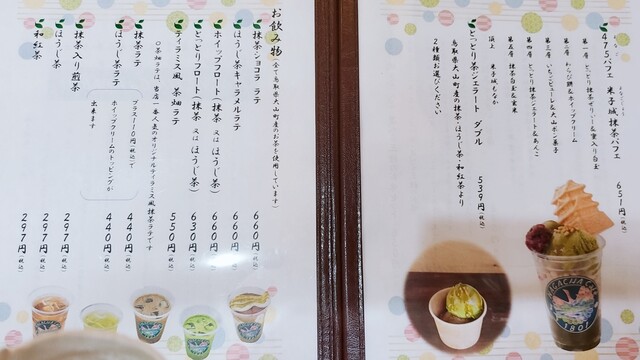 475パフェ 米子城抹茶パフェ 651円(税込)
第一層 とっとり抹茶ゼリー&蜜入り白玉
第二層 わらび餅&ホイップクリーム
第三層 いちごピューレ&大山ポン菓子
第四層 とっとり抹茶ジェラート&あんこ
第五層 抹茶白玉&玄米
頂上 米子城もなか
とっとり茶ジェラート ダブル 539円(税込)
鳥取県大山町産の抹茶・ほうじ茶・和紅茶より
2種類お選びください
お飲み物(全て鳥取県大山町産のお茶を使用しています)
抹茶ショコラ ラテ 660円(税込)
ほうじ茶キャラメルラテ 660円(税込)
ホイップフロート(抹茶 又は ほうじ茶) 660円(税込)
とっとりフロート(抹茶 又は ほうじ茶) 630円(税込)
ティラミス風 茶畑ラテ 550円(税込)
○茶畑ラテは、当店一番人気のオリジナルティラミス風抹茶ラテです
抹茶ラテ 440円(税込)
ほうじ茶ラテ 440円(税込)
プラス110円(税込)で
ホイップクリームのトッピングが
出来ます
抹茶入り煎茶 297円(税込)
ほうじ茶 297円(税込)
和紅茶 297円(税込)
1801